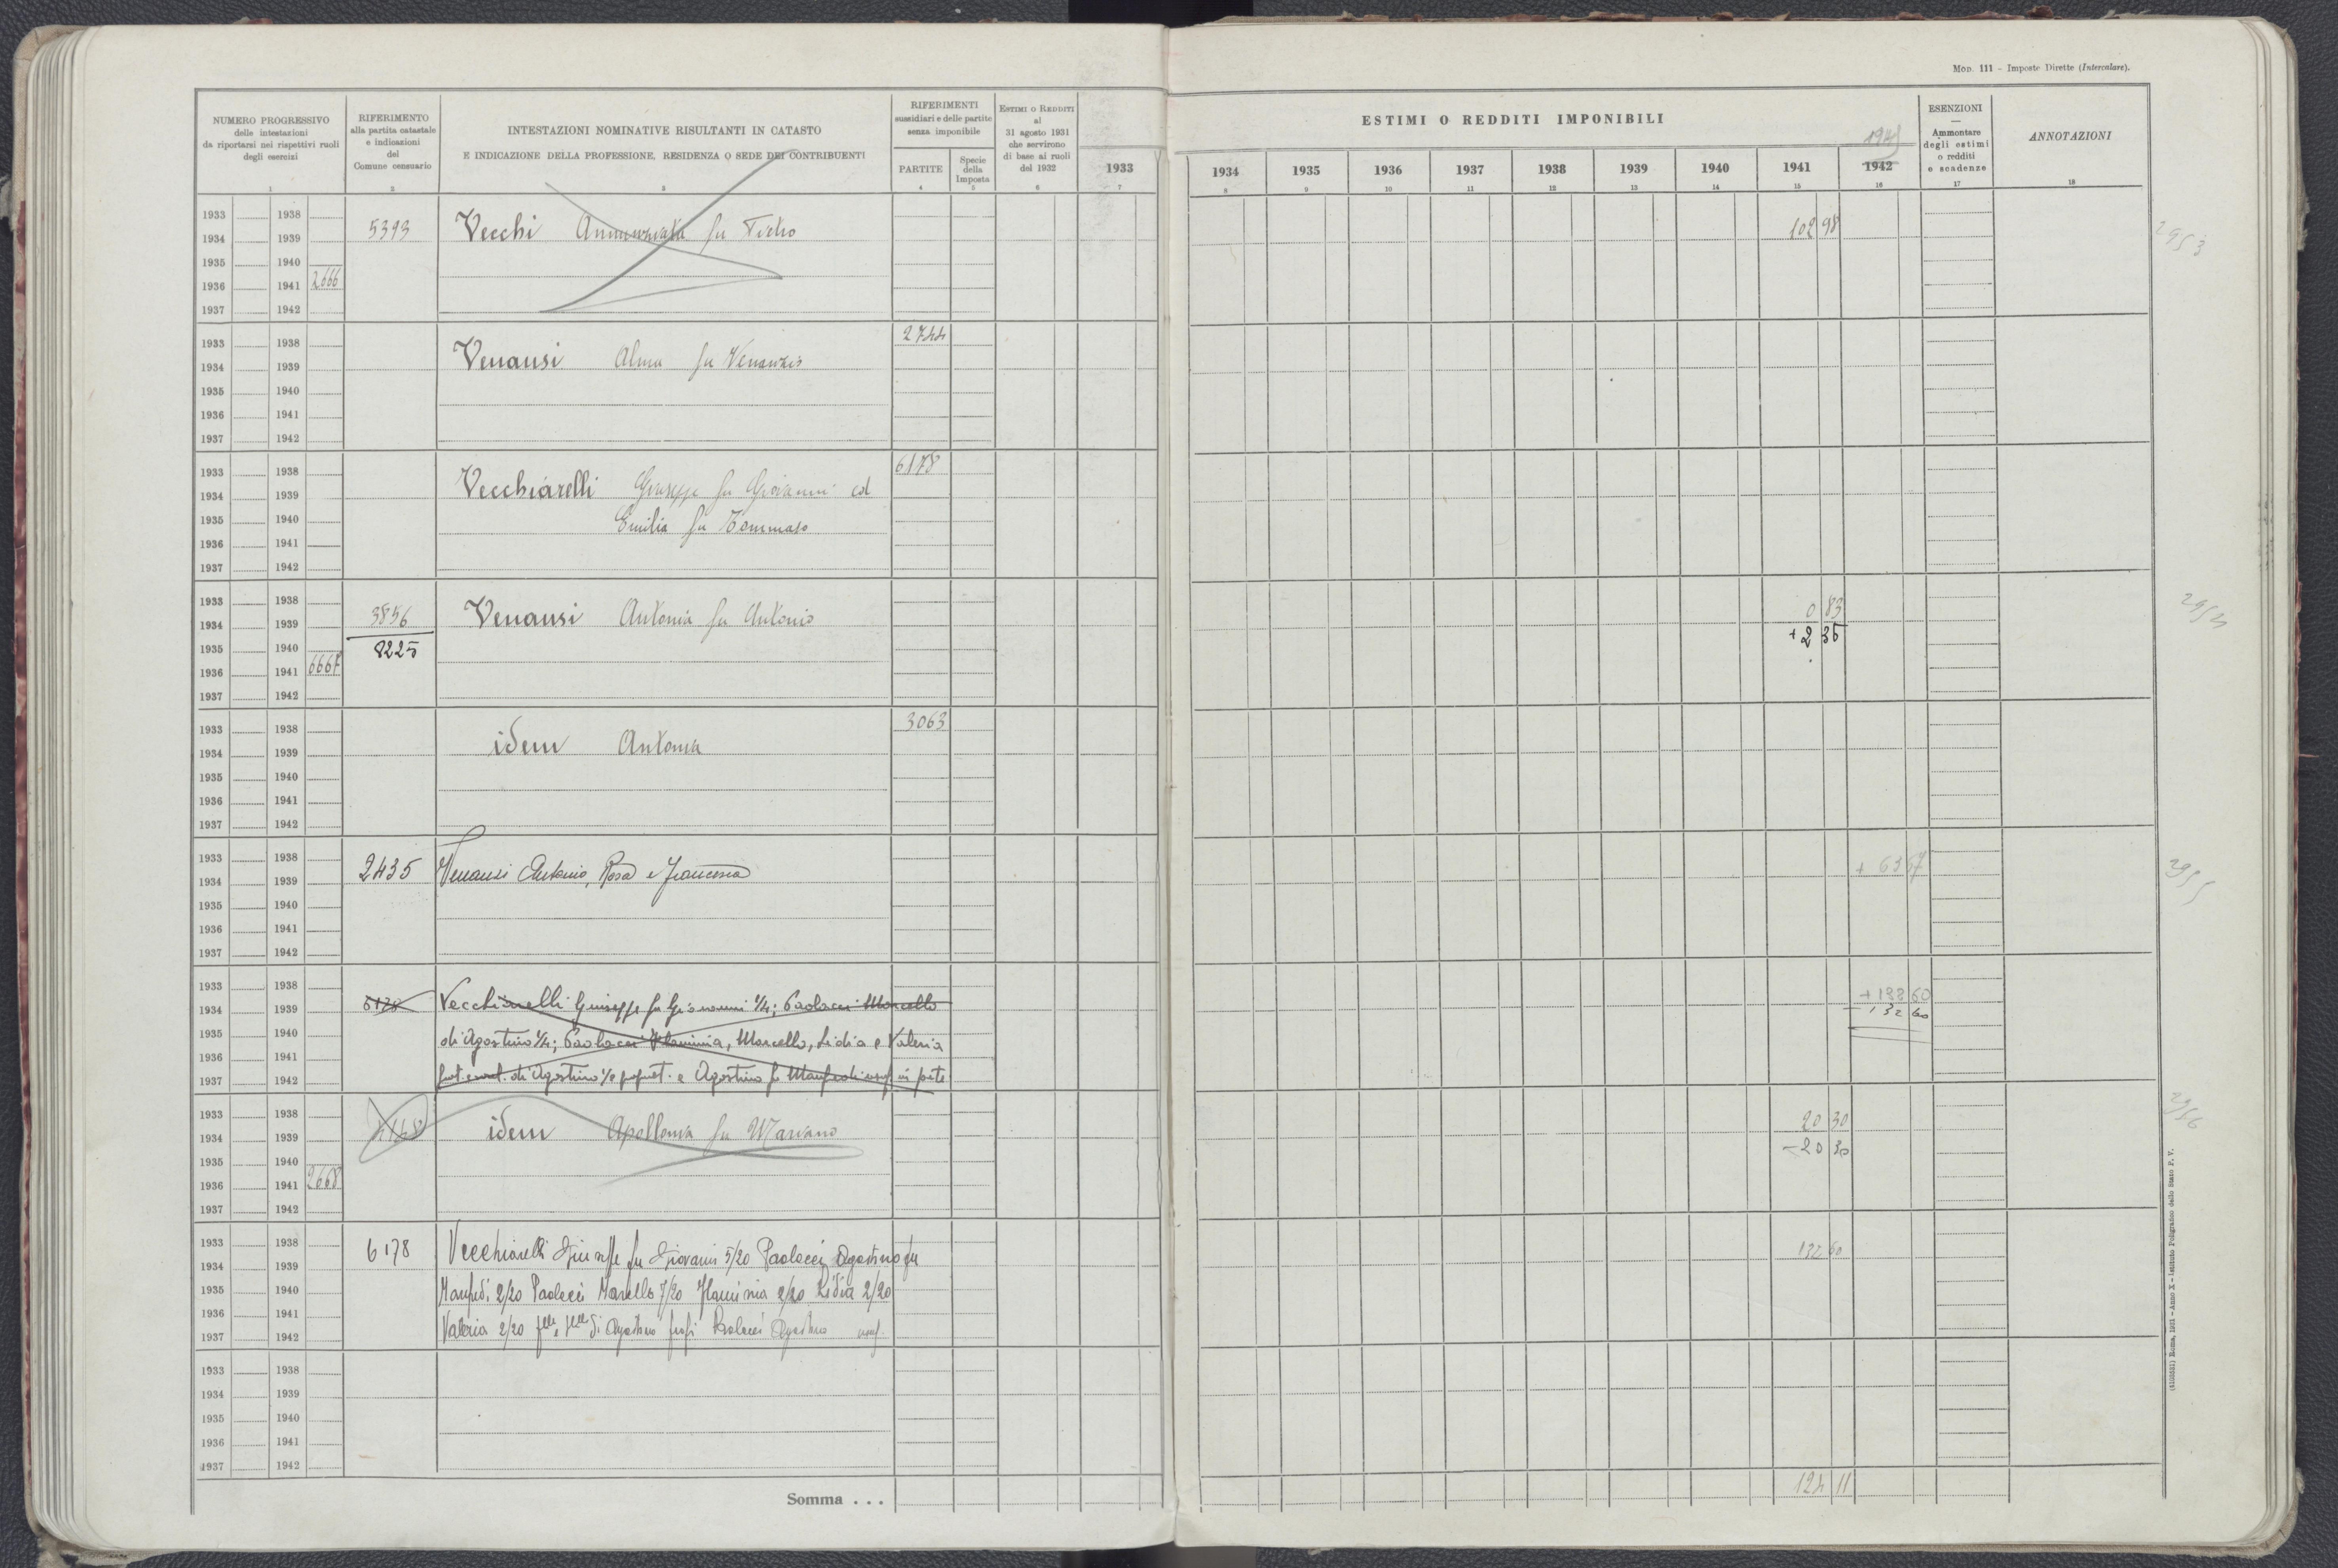 MOD. 111 – Imposte Dirette (Intercalare).
NUMERO PROGRESSIVO
delle intestazioni
da riportarsi nei rispettivi ruoli
degli esercizi
1
RIFERIMENTO
alla partita catastale
e indicazioni
del
Comune censuario
2
INTESTAZIONI NOMINATIVE RISULTANTI IN CATASTO
E INDICAZIONE DELLA PROFESSIONE, RESIDENZA O SEDE DEI CONTRIBUENTI
3
RIFERIMENTI
sussidiari e delle partite
senza imponibile
PARTITE
4
Specie
della
Imposta
5
ESTIMI O REDDITI
al
31 agosto 1931
che servirono
di base ai ruoli
del 1932
6
ESTIMI O REDDITI IMPONIBILI
1933 1934 1935 1936 1937 1938 1939 1940 1941 1942
7 8 9 10 11 12 13 14 15 16
ESENZIONI
—
Ammontare
degli estimi
o redditi
e scadenze
17
ANNOTAZIONI
18
1933 1938
1934 1939 5393 Vecchi Annunziata fu Tito 102 98 2953
1935 1940
1936 1941 2666
1937 1942
1933 1938 2744
1934 1939 Venansi Alma fu Venanzio
1935 1940
1936 1941
1937 1942
1933 1938 6178
1934 1939 Vecchiarelli Giuseppe fu Giovanni ed
1935 1940 Emilia fu Tommaso
1936 1941
1937 1942
1933 1938 0 83
1934 1939 3856 Venansi Antonia fu Antonio + 2 35
1935 1940 8225
1936 1941 6667
1937 1942
1933 1938 3063
1934 1939 idem Antonia
1935 1940
1936 1941
1937 1942
1933 1938
1934 1939 2435 Venansi Antonio, Rosa e Francesca + 63 57 2955
1935 1940
1936 1941
1937 1942
1933 1938
1934 1939 Vecchiarelli Giuseppe fu Giovanni 1/4; Paolacci Marcello
1935 1940 di Agostino 1/4; Paolacci Flaminia, Marcello, Lidia e Valeria
1936 1941
1937 1942 di Agostino 1/2 propriet. e Agostino fu Manfredi usuf in parte
132 60
1933 1938 20 30 2956
1934 1939 idem Apollonia fu Mariano – 20 30
1935 1940
1936 1941 2668
1937 1942
1933 1938 6178 Vecchiarelli Giuseppe fu Giovanni 5/20 Paolacci Agostino fu 132 60
1934 1939
1935 1940 Manfredi 2/20 Paolacci Marcello 7/20 Flaminia 2/20 Lidia 2/20
1936 1941
1937 1942 Valeria 2/20 di Agostino Paolacci Agostino usuf.
1933 1938
1934 1939
1935 1940
1936 1941
1937 1942
Somma . . . 124 11
(4103531) Roma, 1931 – Anno X – Istituto Poligrafico dello Stato P. V.